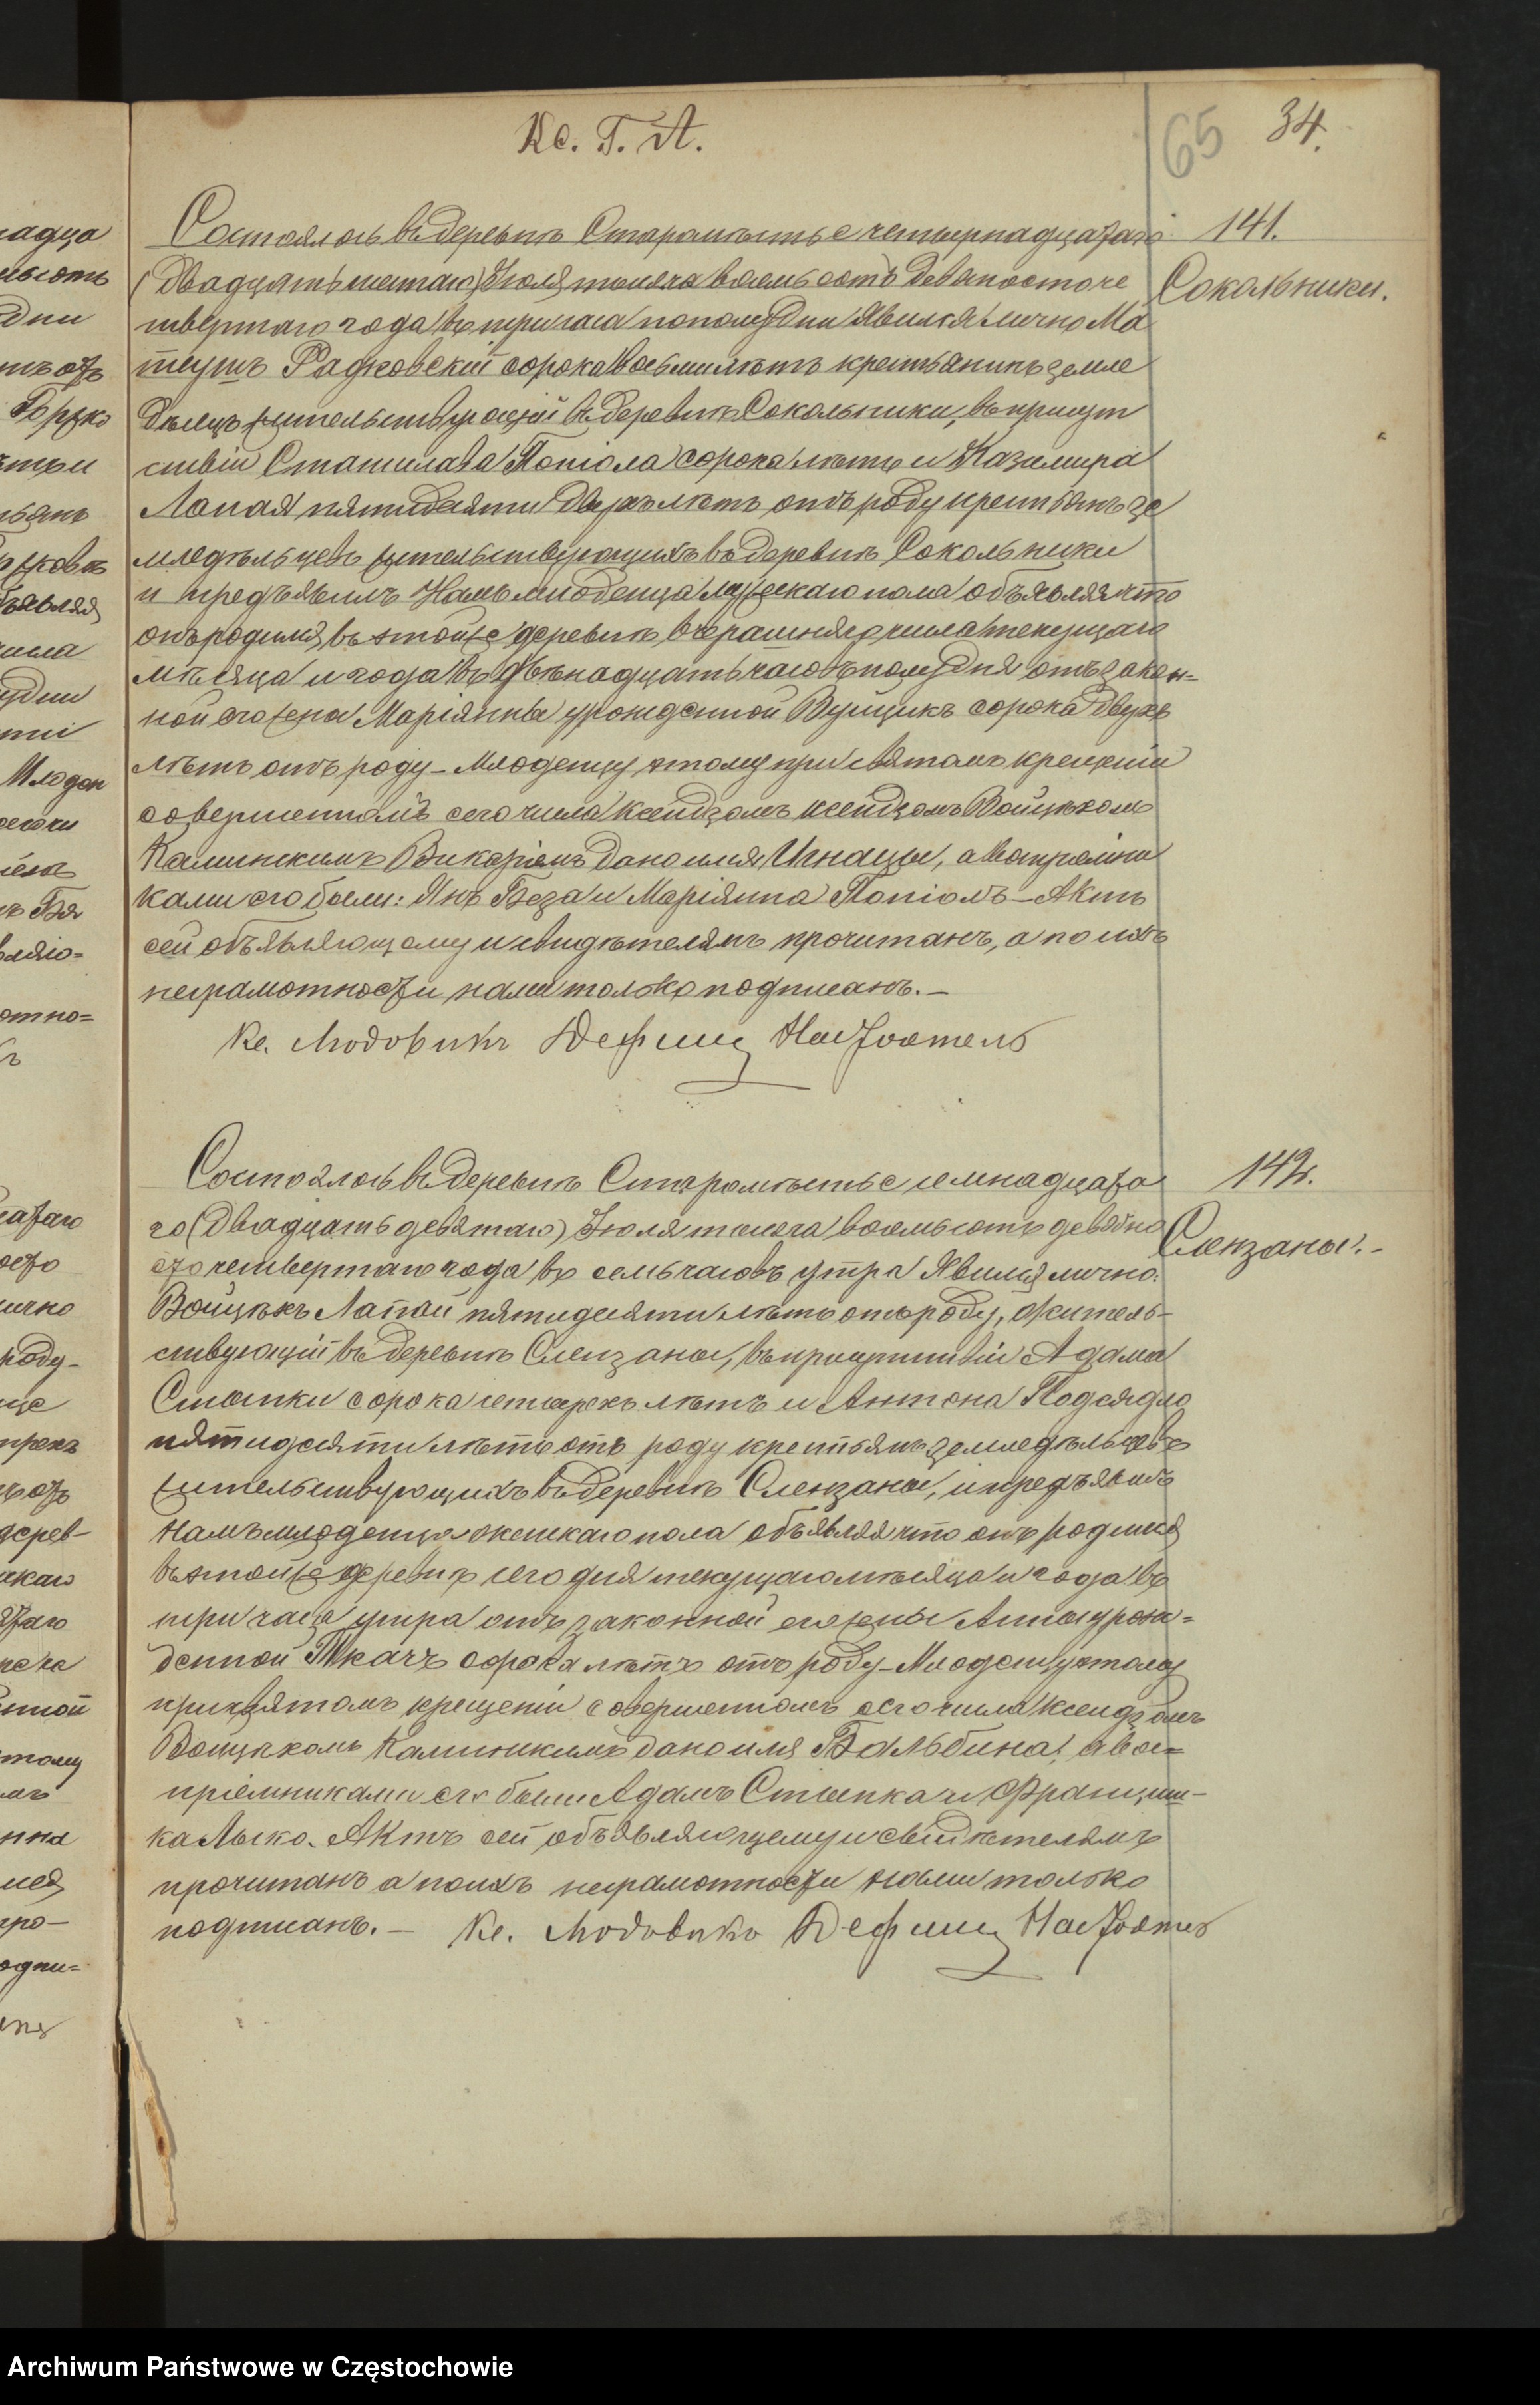 Кс. Г. А.
65 34.
141.
Сокольники.
Состоялось въ деревнѣ Старомѣстье четырнадцатаго
(двадцать шестаго) Іюля тысяча восемьсотъ девяносто че
твертаго года въ три часа пополудни Явился лично Ма
теушъ Радковскій сорока восьми лѣтъ крестьянинъ земле
дѣлецъ жительствующій въ деревнѣ Сокольники, въ присут
ствіи Станислава Попіола сорока лѣтъ и Казимира
Лопая пятидесяти двухъ лѣтъ отъ роду крестьянъ зе
мледѣльцевъ жительствующихъ въ деревнѣ Сокольники
и предъявилъ Намъ младенца мужескаго пола объявляя что
онъ родился въ этойже деревнѣ вчерашняго числа текущаго
мѣсяца и года въ двѣнадцать часовъ полудня отъ закон=
ной его жена Маріянны урожденной Вуйцикъ сорока двухъ
лѣтъ отъ роду – Младенцу этому при святомъ крещеніи
совершенномъ сего числа ксендзомъ ксендзомъ Войцѣхомъ
Калинскимъ Викаріемъ дано имя Игнацы, а воспріемни
ками его были: Янъ Беза и Маріянна Попіолъ – Актъ
сей объявляющему и свидѣтелямъ прочитанъ, а по ихъ
неграмотности нами только подписанъ. –
Кс. Людовикъ Настоятель
142.
Слензаны. –
Состоялось въ деревнѣ Старомѣстье семнадцата
го (двадцать девятаго) Іюля тысяча восемьсотъ девяно
сто четвертаго года въ семь часовъ утра Явился лично:
Войцѣхъ Лапай пятидесяти лѣтъ отъ роду, житель=
ствующій въ деревнѣ Слензаны, въ присутствіи Адама
Стыпки сорока четырехъ лѣтъ и Антона Подсядло
пятидесяти лѣтъ отъ роду крестьянъ земледѣльцевъ
жительствующихъ въ деревнѣ Слензаны, и предъявилъ
Намъ младенца женскаго пола объявляя что онъ родился
въ этойже деревнѣ сего дня текущаго мѣсяца и года въ
три часа утра отъ законной его жены Анны урож=
денной Ткачъ сорока лѣтъ отъ роду – Младенцу этому
при святомъ крещеніи совершенномъ сего числа ксендзомъ
Войцѣхомъ Калинскимъ дано имя Бальбина, а вос=
пріемниками его были Адамъ Стыпка и Францыш–
ка Лыко. Актъ сей объявляющему и свидѣтелямъ
прочитанъ а по ихъ неграмотности нами только
подписанъ. – Кс. Людовикъ Настоятель
Archiwum Państwowe w Częstochowie